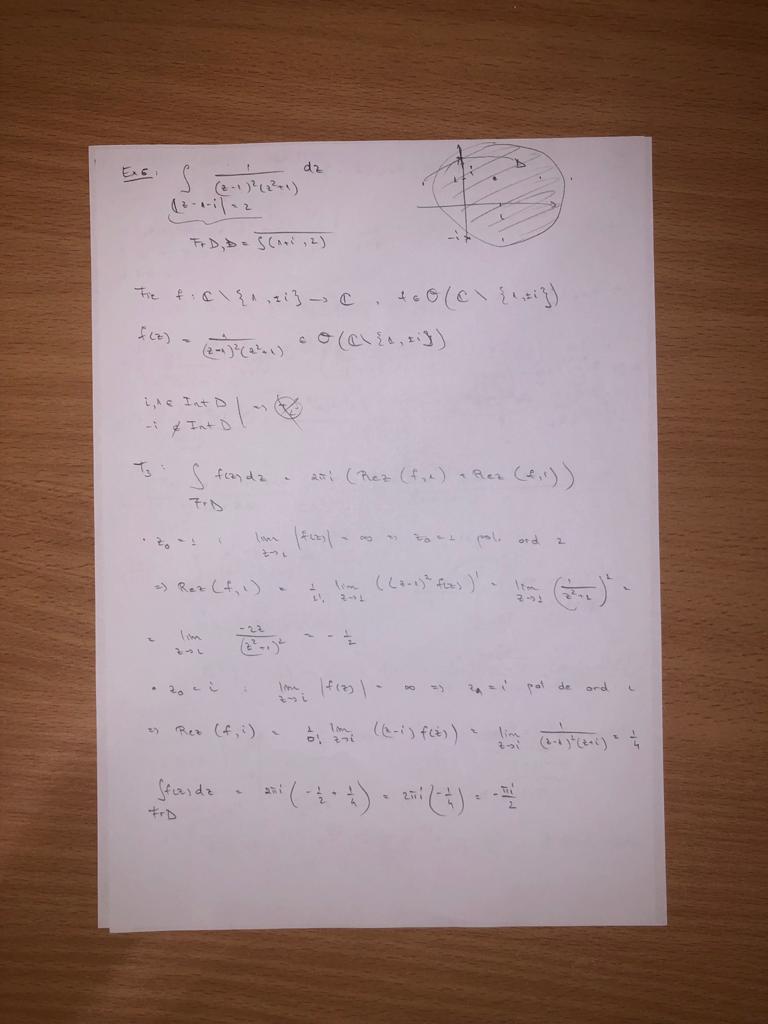 Ex 6: ∫ 1/((z-1)²(z²+1)) dz
|z-1-i|=2
FrD, D = S(1+i, 2)
D
i
-i
Fie f: ℂ \ {1, ±i} → ℂ, f ∈ O(ℂ \ {1, ±i})
f(z) = 1/((z-1)²(z²+1)) ∈ O(ℂ \ {1, ±i})
i, 1 ∈ Int D
-i ∉ Int D | =>
T3: ∫ f(z) dz = 2πi (Rez (f,1) + Rez (f,i))
FrD
• z₀ = 1 : lim z→1 |f(z)| = ∞ => z₀ = 1 pol ord 2
=> Rez (f,1) = 1/1! lim z→1 ((z-1)² f(z))' = lim z→1 (1/(z²+1))' =
= lim z→1 -2z/(z²+1)² = -1/2
• z₀ = i : lim z→i |f(z)| = ∞ => z₀ = i pol de ord 1
=> Rez (f,i) = 1/0! lim z→i ((z-i) f(z)) = lim z→i 1/((z-1)²(z+i)) = 1/4
∫ f(z) dz = 2πi (-1/2 + 1/4) = 2πi (-1/4) = -πi/2
FrD